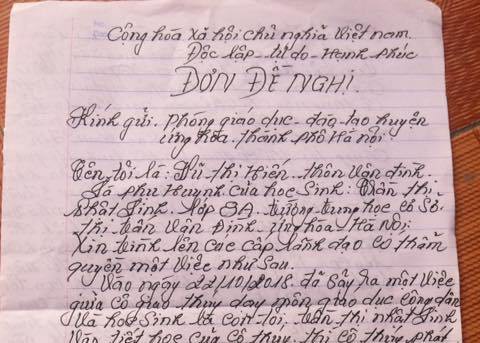 Cộng hòa xã hội chủ nghĩa Việt nam.
Độc lập - tự do - Hạnh phúc
ĐƠN ĐỀ NGHỊ.
Kính gửi. phòng giáo dục - đào tạo huyện
ứng hòa. thành phố Hà nội.
Tên tôi là: Vũ thị Hiến. thôn Vân đình.
Là phụ Huynh của học Sinh: Trần thị
nhất Linh. lớp 8A. trường trung học cơ Sở.
thị trấn Vân Đình. ứng hòa Hà Nội.
Xin trình lên các cấp Lãnh đạo có thẩm
quyền một việc như Sau.
Vào ngày 22/10/2018 đã Sảy ra một việc
giữa cô giáo thủy dạy môn giáo dục công dân
Và học Sinh là con tôi, trần thị nhất Linh
tiết học của cô thủy thì cô thủy phát